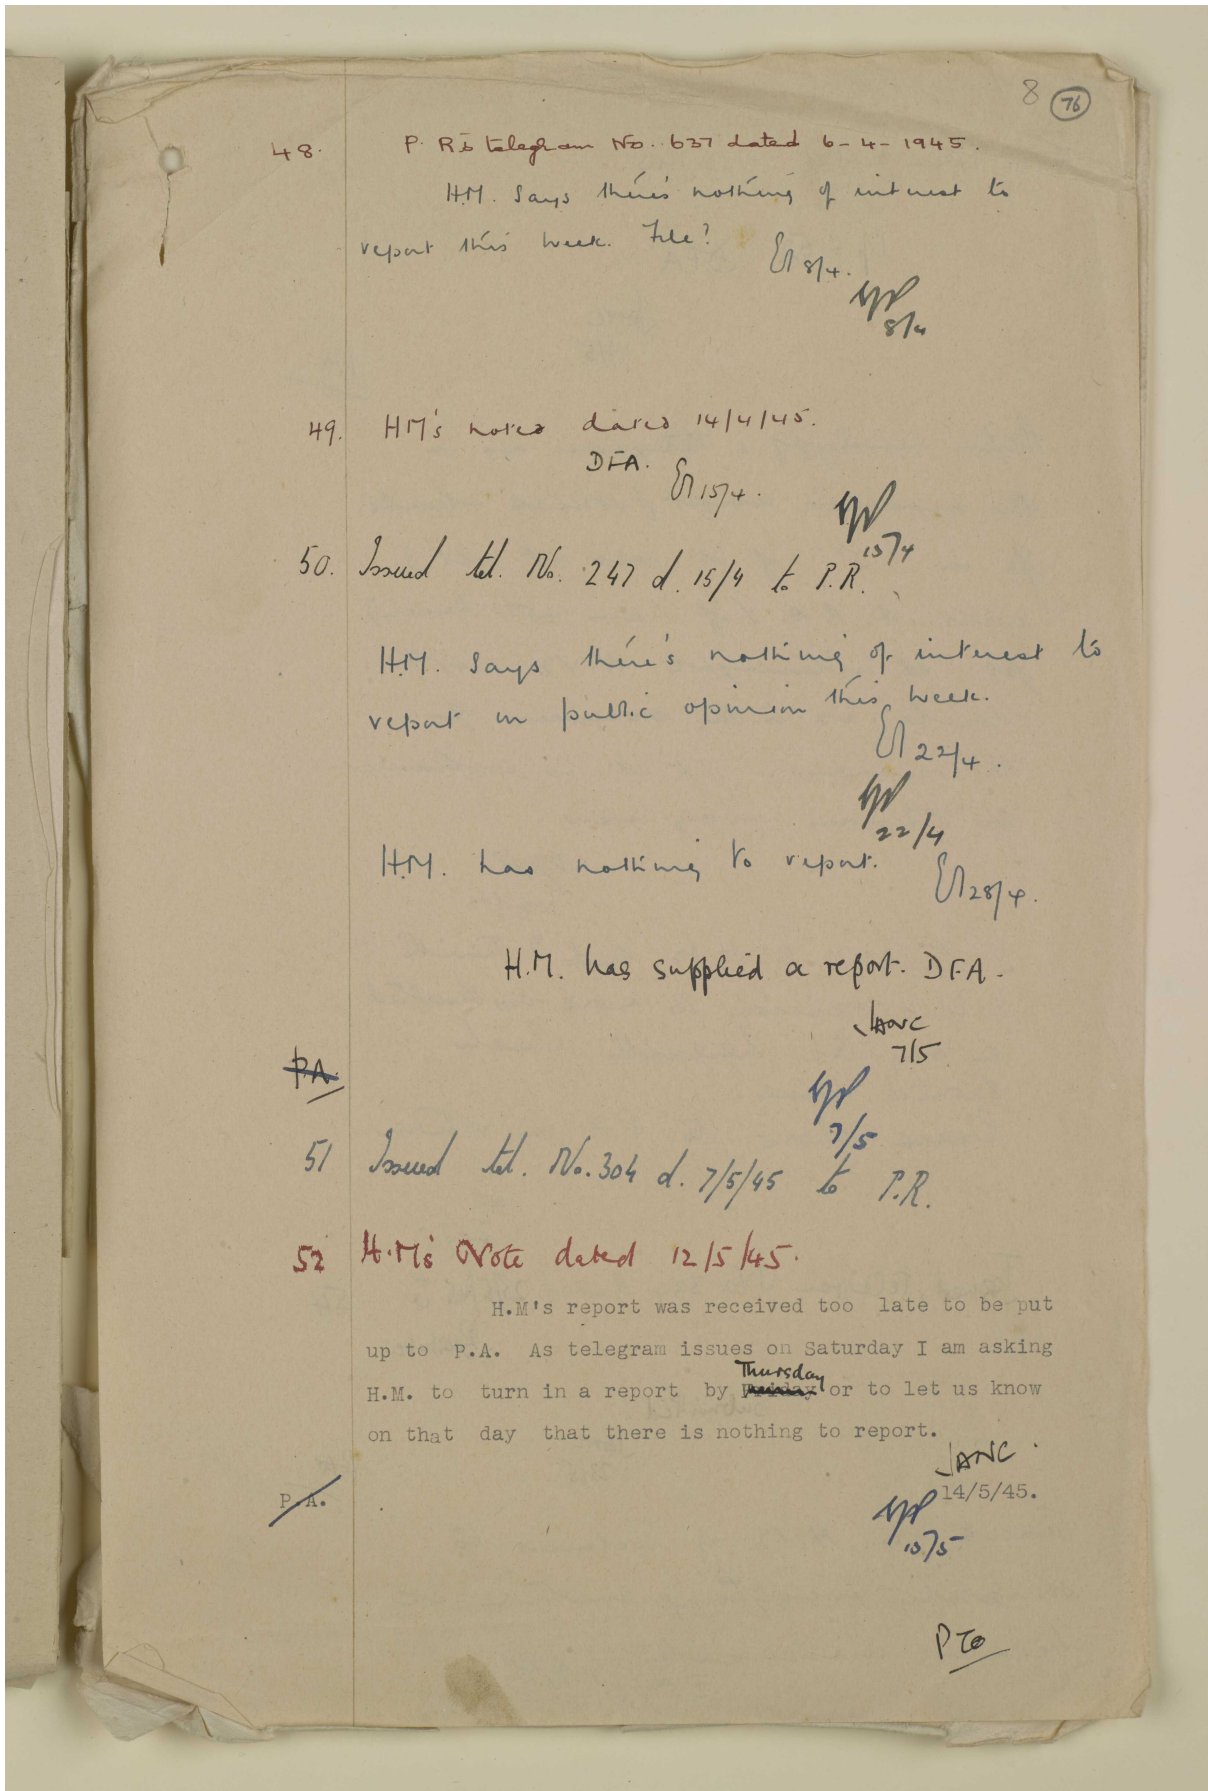 8 76
48. P. R's telegram No. 637 dated 6-4-1945.
H.M. says there's nothing of interest to
report this week. File?
8/4.
8/4
49. HM's notes dated 14/4/45.
DFA.
15/4.
15/4
50. Issued tel. No. 247 d. 15/4 to P.R.
H.M. says there's nothing of interest to
report on public opinion this week.
22/4.
22/4
H.M. has nothing to report.
28/4.
H.M. has supplied a report. DFA.
7/5
P.A.
7/5
51 Issued tel. No. 304 d. 7/5/45 to P.R.
52 H.M's Note dated 12/5/45.
H.M's report was received too late to be put
up to P.A. As telegram issues on Saturday I am asking
Thursday
H.M. to turn in a report by Friday or to let us know
on that day that there is nothing to report.
P.A.
14/5/45.
15/5
PTO